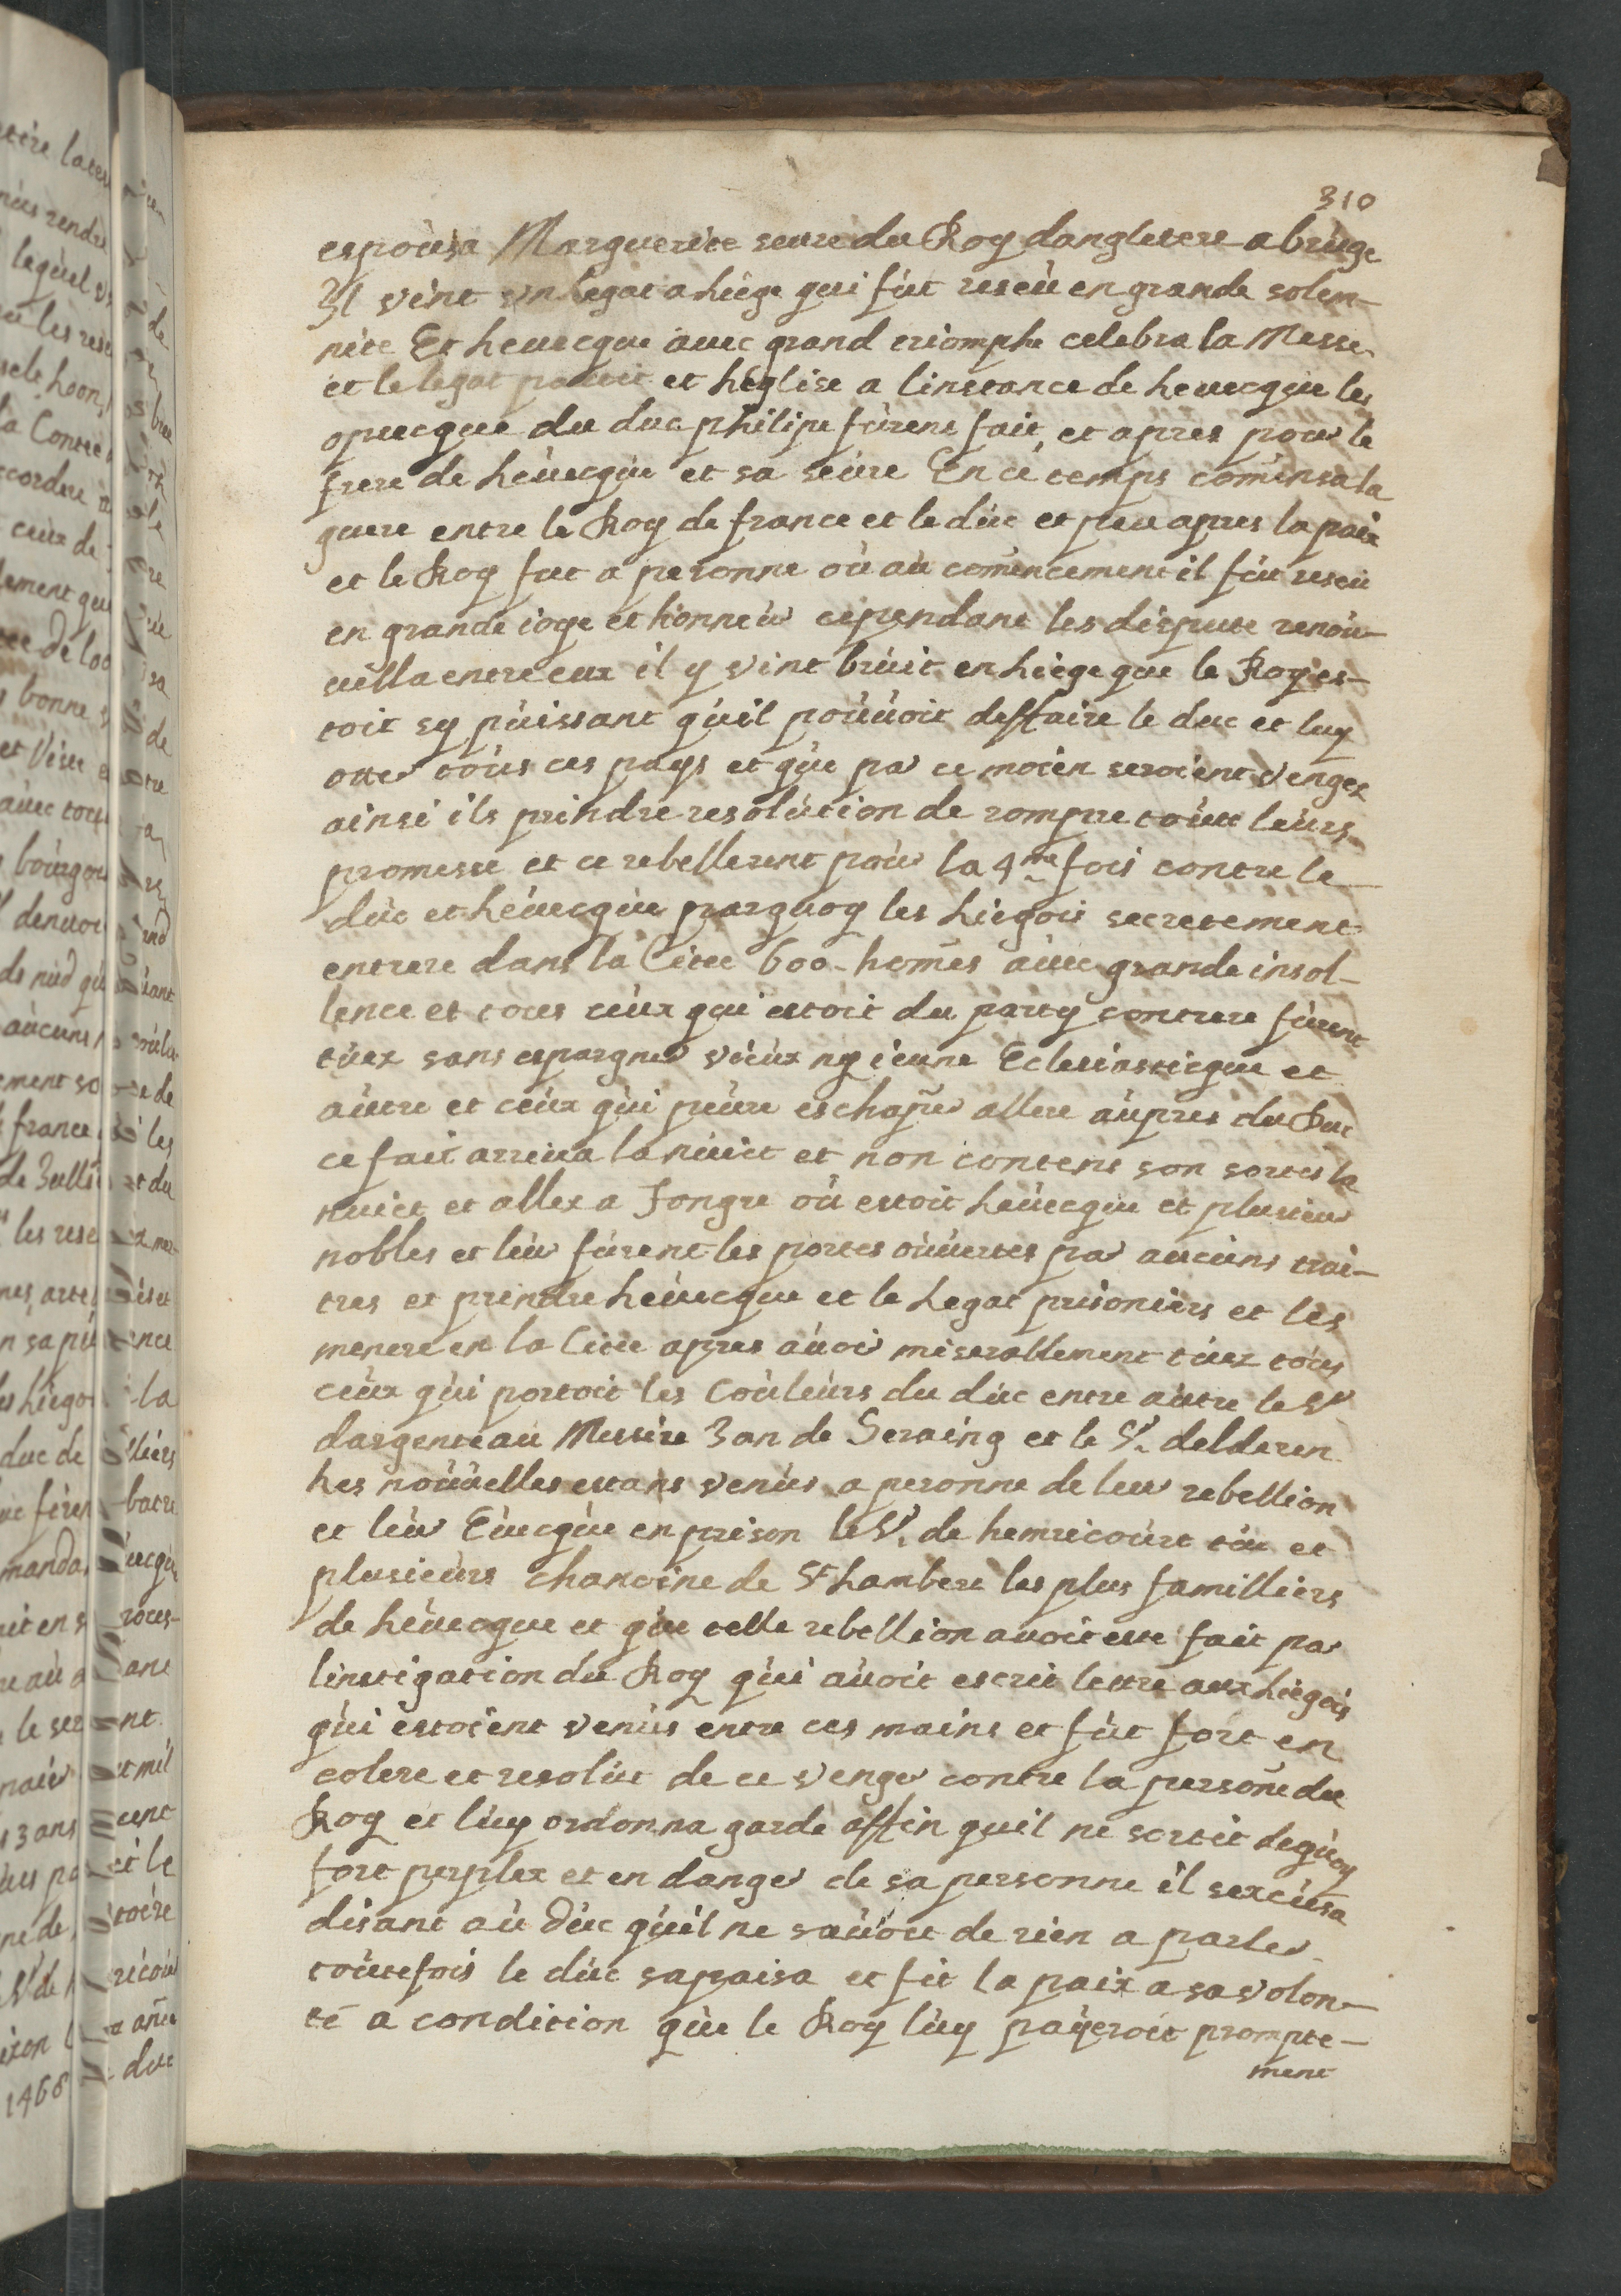 310
espousa Marguerite seure du Roy dangletere a bruge
Il vint un legat a Liege qui fut reseu en grande solem-
nite Et Levecque avec grand triomphe celebra la Messe
et le legat partit et Leglise a linstance de Levecque les
opsecque du duc philipe furent fait et apres pour le
frere de Levecque et sa seure En ce temps comensa la
guere entre le Roy de france et le duc et peu apres la paix
et le Roy fut a peronne où au comencement il fut reseu
en grande ioye et honneur cependant les dispute renou-
vella entre eux il y vint bruit en Liege que le Roy es-
toit sy puissant quil pouvoit deffaire le duc et luy
otter tous ces pays et que par ce moien seroient vengez
ainsi ils prindre resolution de rompre toutte leurs
promesse et ce rebellerent pour la 4me fois contre le
duc et Levecque parquoy les Liegois secretement
entrere dans la Citee 600 homes avec grande insol-
lence et tous ceux qui estoit du party contrere furent
tuez sans espargner vieux ny ieune Eclesiasticque et
autre et ceux qui peure eschaper allere aupres du Duc
ce fait arriva la nuict et non contens son sortes la
nuict et allez a Tongre où estoit Levecque et plusieur
nobles et leur furent les portes ouvertes par aucuns trai-
tres et prindre Levecque et le Legat prisoniers et les
menere en la Citee apres avoir miserablement tuez tous
ceux qui portoit les Couleurs du duc entre autre le Sr
dargenteau Messire Jan de Seraing et le Sr delderen
Les nouvelles estans venus a peronne de leur rebellion
et leur Evecque en prison le Sr de hemricourt tue et
plusieurs chanoine de St Lambert les plus familliers
de Levecque et que telle rebellion avoit este fait par
linstigation du Roy qui avoit escrit lettre aux Liegois
qui estoient venus entre ces mains et fut fort en
colere et resolut de ce venger contre la persone du
Roy et luy ordonna garde affin quil ne sortit dequoy
fort perplex et en danger de sa personne il sexcusa
disant au Duc quil ne savoit de rien a parler
toutefois le duc sapaisa et fit la paix a sa volon-
té a condition que le Roy luy payeroit prompte-
ment